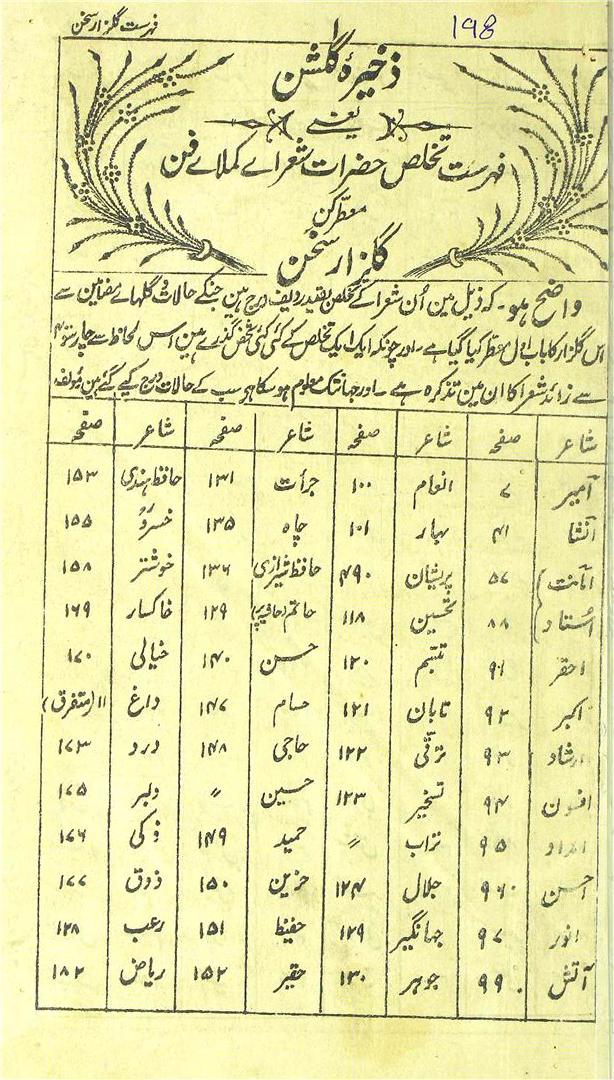 فہرست گلزار سخن
198
ذخیرۂ گلشن
یعنے
فہرست تخلص حضرات شعراے کملاے فن
معطر کن
گلزار سخن
واضح ہو۔ کہ ذیل مین اُن شعرا کے تخلص بقید ردیف درج ہین جنکے حالات و گلہاے مضامین سے
اس گلزار کا باب اول معطر کیا گیا ہے۔ اور چونکہ ایک ایک تخلص کے کئی کئی شخص گذرے ہین اس لحاظ سے چار سو
سے زائد شعرا کا ان مین تذکرہ ہے۔ اور جہانتک معلوم ہو سکا ہو سب کے حالات درج کیے گئے ہین مؤلف
شاعر صفحہ شاعر صفحہ شاعر صفحہ شاعر صفحہ
آمیر ۷ انعام ۱۰۰ جرأت ۱۳۱ حافظ ہندی ۱۵۳
آنشا ۴۱ بہار ۱۰۱ چاہ ۱۳۵ خسرو ۱۵۵
امانت ۵۷ پریشان ۴۹۰ حافظ شیرازی ۱۳۶ خوشتر ۱۵۸
اُستاد ۸۸ تحسین ۱۱۸ حاتم ۱۲۹ خاکسار ۱۶۹
احقر ۹۱ تبسم ۱۲۰ حسن ۱۴۰ خیالی ۱۷۰
اکبر ۹۲ تابان ۱۲۱ حسام ۱۴۷ داغ ۱۱ (متفرق)
ارشاد ۹۳ ترقی ۱۲۲ حاجی ۱۴۸ درد ۱۷۳
افسون ۹۴ تسخیر ۱۲۳ حسین 〃 دلبر ۱۷۵
امداد ۹۵ تراب 〃 حمید ۱۴۹ ذکی ۱۷۶
احسن ۹۶ جلال ۱۲۴ حزین ۱۵۰ ذوق ۱۷۷
انور ۹۷ جہانگیر ۱۲۹ حفیظ ۱۵۱ رعب ۱۲۸
آتش ۹۹ جوہر ۱۳۰ حقیر ۱۵۲ ریاض ۱۸۲